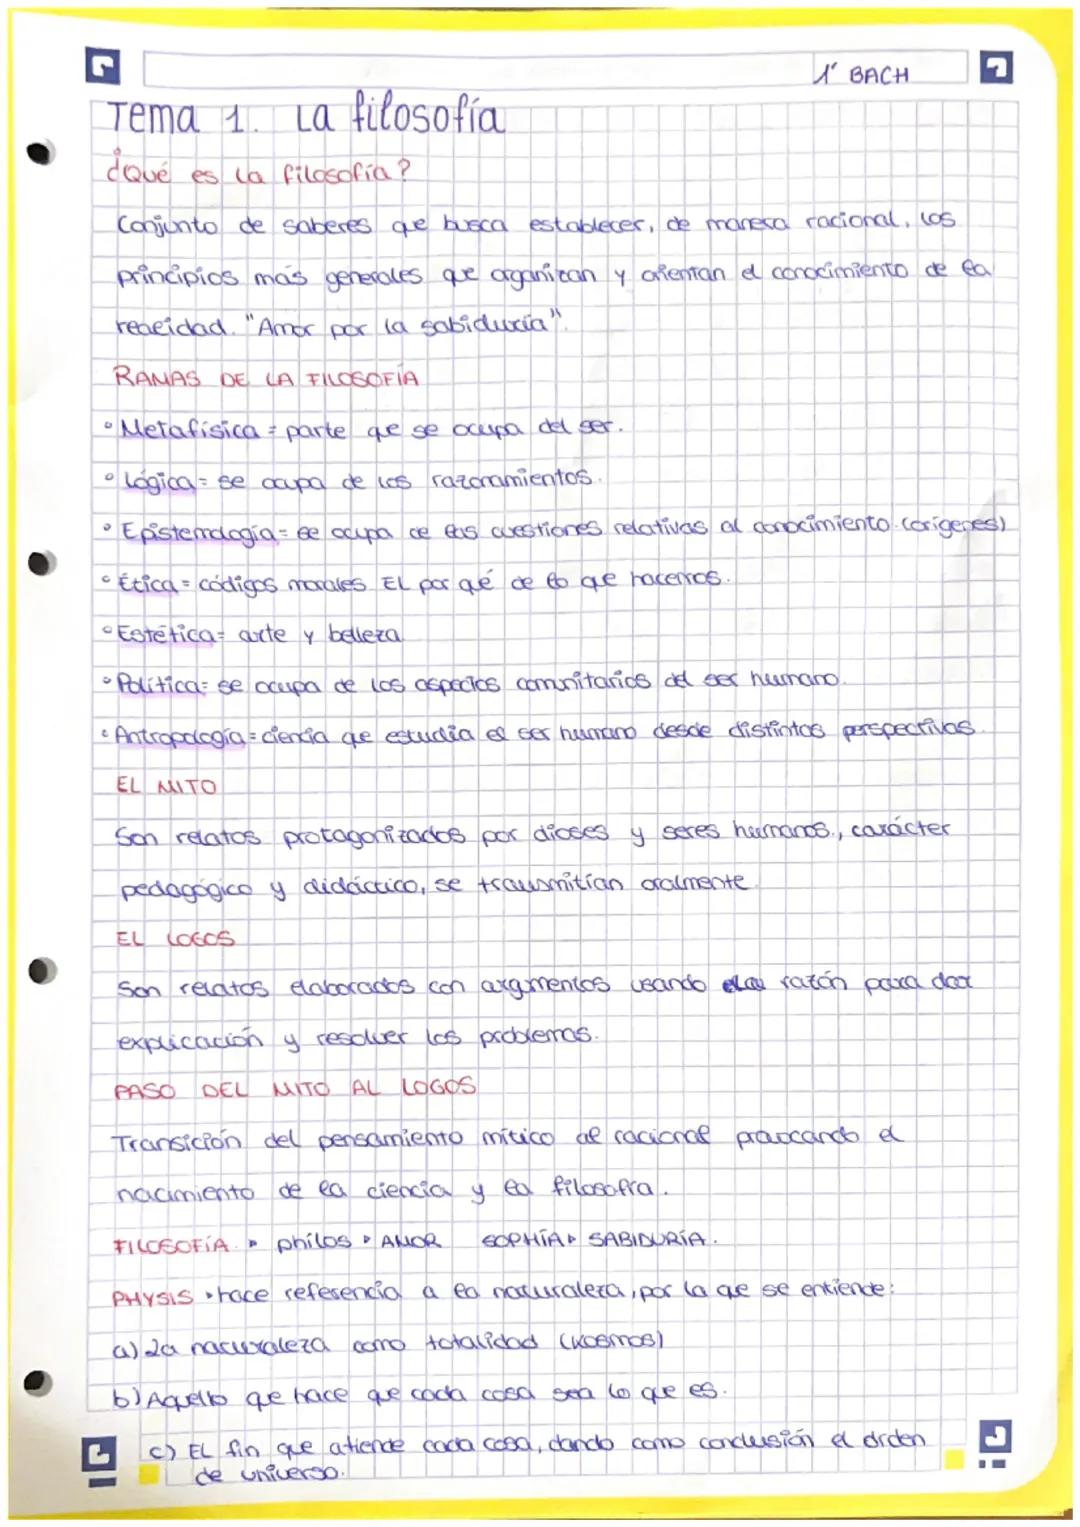 1º BACH
Tema 1. La filosofía
¿Qué es la filosofía?
Conjunto de saberes que busca establecer, de manera racional, los
principios más generales que organizan y orientan el conocimiento de la
realidad. "Amor por la sabiduría".
RAMAS DE LA FILOSOFÍA
• Metafísica = parte que se ocupa del ser.
• Lógica = se ocupa de los razonamientos.
• Epistemología = se ocupa de las cuestiones relativas al conocimiento. (orígenes)
• Ética = códigos morales. El por qué de lo que hacemos.
• Estética = arte y belleza
• Política = se ocupa de los aspectos comunitarios del ser humano.
• Antropología = ciencia que estudia el ser humano desde distintas perspectivas.
EL MITO
Son relatos protagonizados por dioses y seres humanos., carácter
pedagógico y didáctico, se transmitían oralmente.
EL LOGOS
Son relatos elaborados con argumentos usando la razón para dar
explicación y resolver los problemas.
PASO DEL MITO AL LOGOS
Transición del pensamiento mítico al racional provocando el
nacimiento de la ciencia y la filosofía.
FILOSOFÍA ▸ philos ▸ AMOR SOPHÍA ▸ SABIDURÍA.
PHYSIS ▸ hace referencia a la naturaleza, por la que se entiende:
a) La naturaleza como totalidad (kosmos)
b) Aquello que hace que cada cosa sea lo que es.
c) El fin que atiende cada cosa, dando como conclusión el orden
de universo.